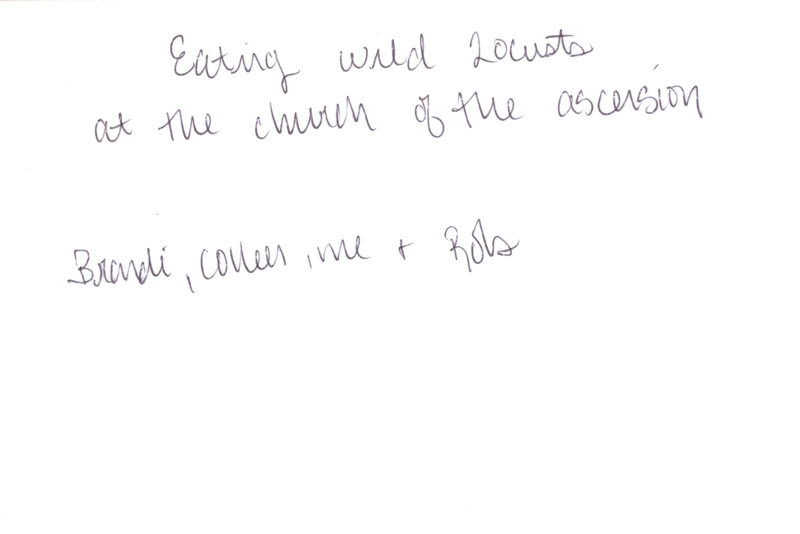 Eating wild Locusts
at the church of the ascension
Brandi, Colleen, me + Rob